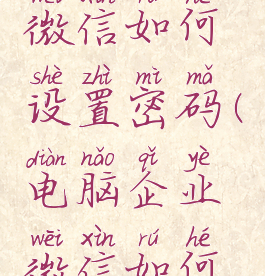 wēi xìn rú hé
微信如何
shè zhì mì mǎ
设置密码(
diàn nǎo qǐ yè
电脑企业
wēi xìn rú hé
微信如何